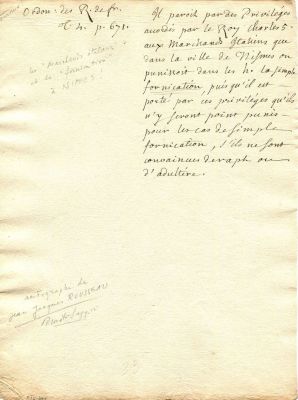 Ordon: des R. de fr.
T. 4. p. 671.
les "marchands italiens"
et la "fornication"
à NIMES
Il paroit par des Privilèges
accordés par le Roy Charles 5.
aux Marchands Italiens que
dans la ville de Nismes on
punissoit dans les h. la simple
fornication, puis qu'il est
porté par ces privilèges qu'ils
n'y seront point punis
pour les cas de simple
fornication, s'ils ne sont
convaincus de rapt ou
d'adultére.
autographe de
Jean Jacques ROUSSEAU